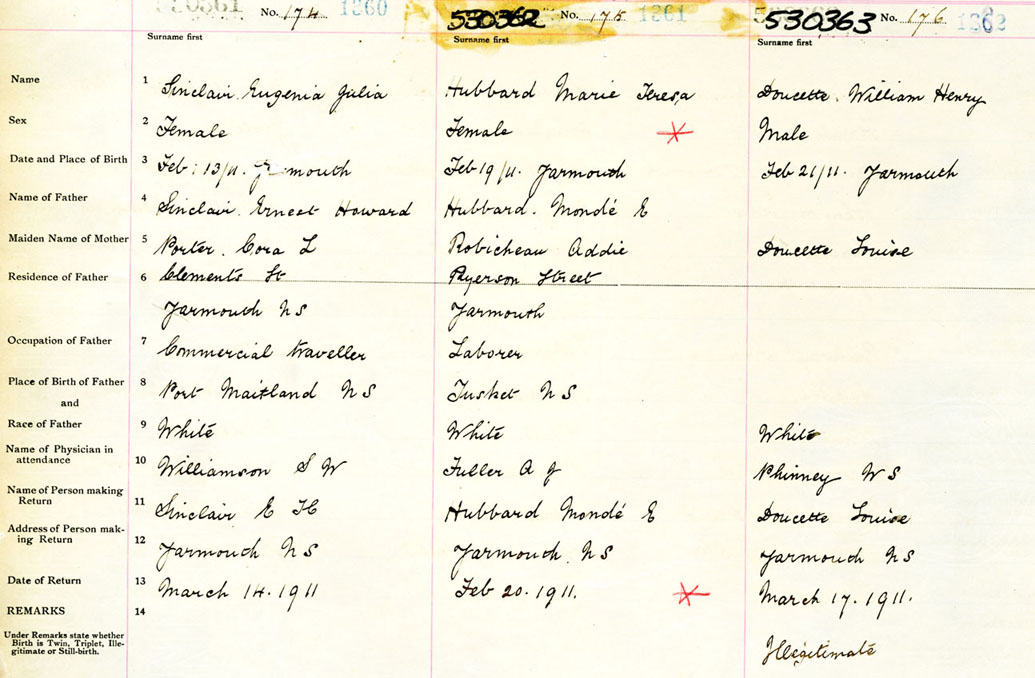 530361 No. 174 1360 530362 No. 175 1361 530363 No. 176 1362
Surname first Surname first Surname first
Name 1 Sinclair Eugenia Julia Hubbard Marie Teresa Doucette. William Henry
Sex 2 Female Female Male
Date and Place of Birth 3 Feb: 13/11. mouth Feb 19/11. Yarmouth Feb 21/11. Yarmouth
Name of Father 4 Sinclair. Ernest Howard Hubbard. Mondé E
Maiden Name of Mother 5 Porter. Cora L Robicheau Addie Doucette Louise
Residence of Father 6 Clements St Ryerson Street
Yarmouth NS Yarmouth
Occupation of Father 7 Commercial traveller Laborer
Place of Birth of Father 8 Port Maitland NS Tusket NS
and
Race of Father 9 White White White
Name of Physician in attendance 10 Williamson S W Fuller A J Phinney W S
Name of Person making Return 11 Sinclair E H Hubbard Mondé E Doucette Louise
Address of Person mak-ing Return 12 Yarmouth NS Yarmouth. NS Yarmouth NS
Date of Return 13 March 14. 1911 Feb 20. 1911. March 17. 1911.
REMARKS 14
Under Remarks state whether
Birth is Twin, Triplet, Ille-
gitimate or Still-birth.
Illegitimate